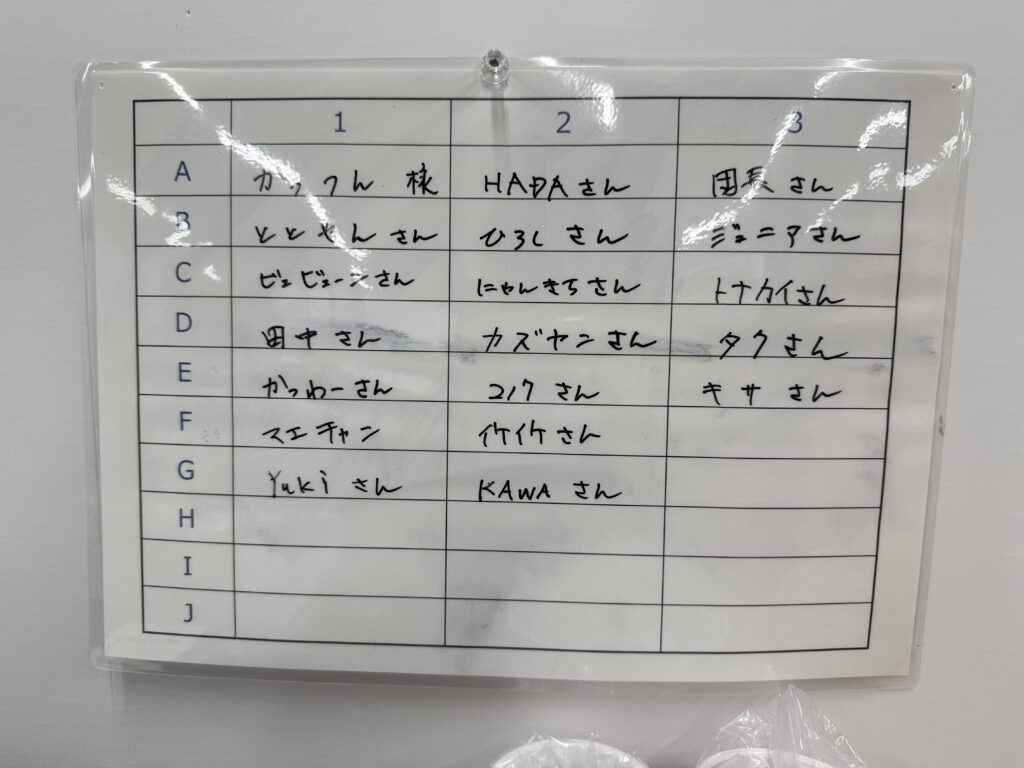 1 2 3
A かっつん 様 HADA さん 団長 さん
B ととやん さん ひろし さん ジュニアさん
C ビュビューンさん にゃんきちさん トナカイさん
D 田中 さん カズヤン さん タク さん
E かつわーさん さん キサ さん
F スエチャン イケイケ さん
G Yuki さん KAWA さん
H
I
J